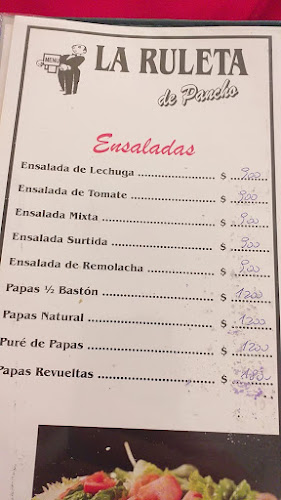 MENU
LA RULETA
de Pancho
Ensaladas
Ensalada de Lechuga ........................ $ 900
Ensalada de Tomate ........................ $ 900
Ensalada Mixta ........................ $ 900
Ensalada Surtida ........................ $ 900
Ensalada de Remolacha ........................ $ 900
Papas ½ Bastón ........................ $ 1200
Papas Natural ........................ $ 1200
Puré de Papas ........................ $ 1200
Papas Revueltas ........................ $